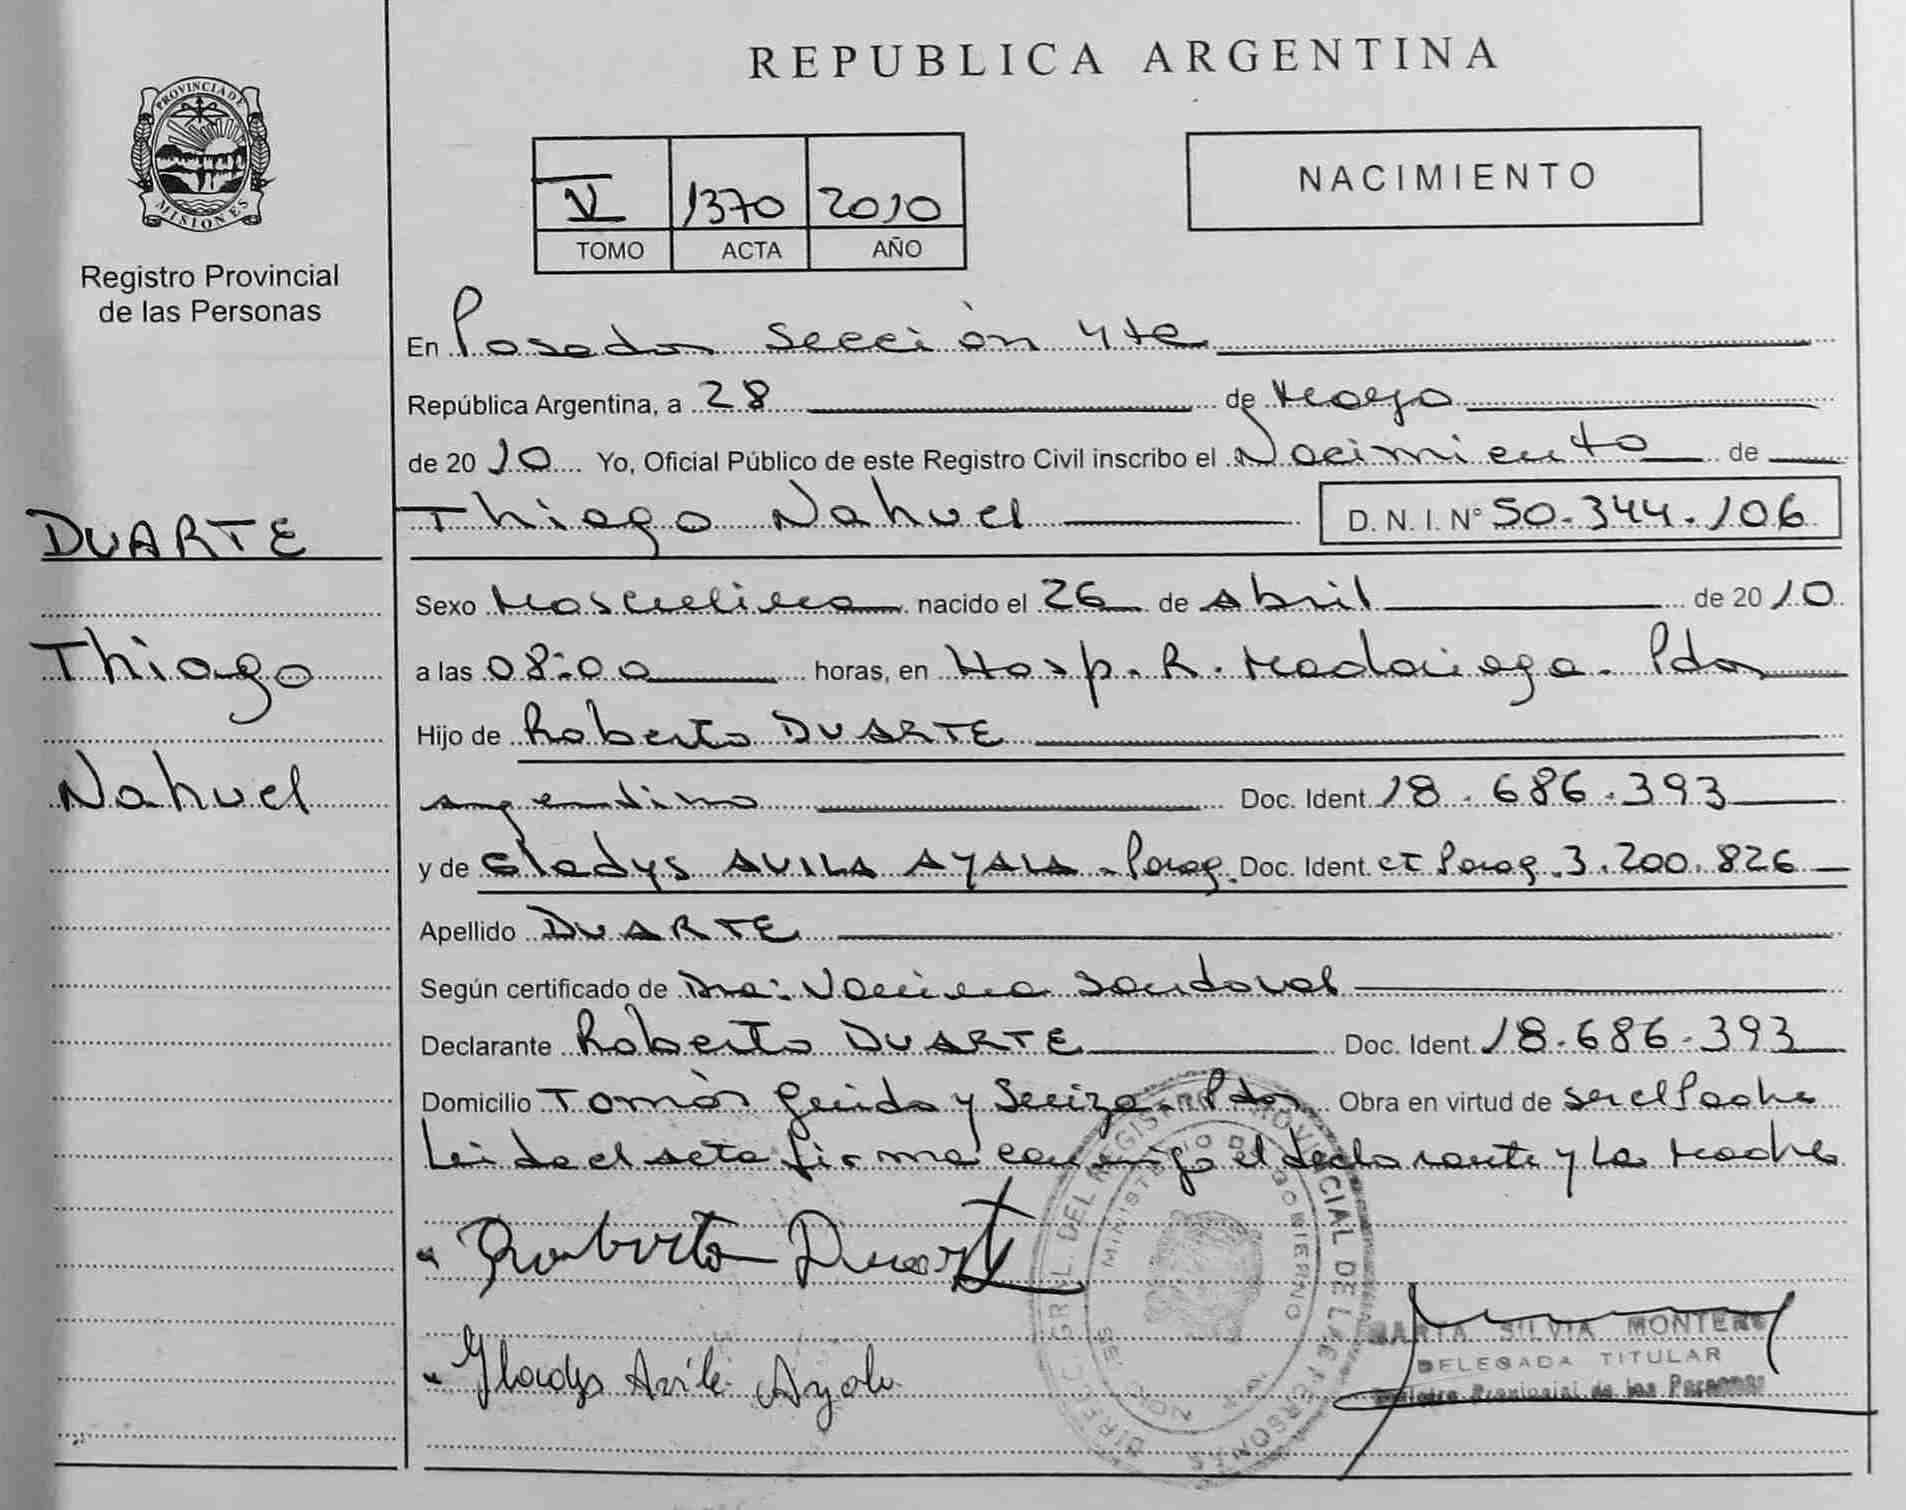 REPUBLICA ARGENTINA
PROVINCIA DE MISIONES
Registro Provincial
de las Personas
V 1370 2010
TOMO ACTA AÑO
NACIMIENTO
En Posadas Sección 4ta
República Argentina, a 28 de Mayo
de 2010 Yo, Oficial Público de este Registro Civil inscribo el Nacimiento de
Thiago Nahuel D. N. I. N° 50.344.106
DUARTE
Thiago
Nahuel
Sexo Masculino nacido el 26 de Abril de 2010
a las 08:00 horas, en Hosp. R. Madariaga. Pdas
Hijo de Roberto DUARTE
argentino Doc. Ident 18.686.393
y de Gladys AVILA AYALA - Parag. Doc. Ident. CI Parag. 3.200.826
Apellido DUARTE
Según certificado de Dra: Vanina Sandoval
Declarante Roberto DUARTE Doc. Ident 18.686.393
Domicilio Tomás Guido y Pdas Obra en virtud de ser el Padre
Leida el acta firma conmigo el declarante y la Madre
Roberto Duarte
Gladys Avila Ayala
DIREC. GRAL. DEL REGISTRO PROVINCIAL DE LAS PERSONAS
MINISTERIO DE GOBIERNO
MARTA SILVIA MONTERO
DELEGADA TITULAR
Registro Provincial de las Personas